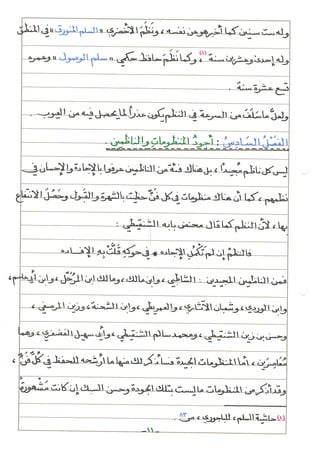 وله ست سنين كما أخبر هو عن نفسه، ونَظَمَ الأخضري «السلم المنورق» في المنطق
وله إحدى وعشرون سنة (١)، وكما نَظَمَ حافظ حكمي «سلم الوصول» وعمره
تسع عشرة سنة.
ولعلَّ ما سَلَفَ من السرعة في النظم يكون عذراً لما يحصل فيه من العيوب.
الفَصْلُ السادِسُ: أجودُ المنظومات والناظمين.
ليس كل ناظم مُجيداً، بل هناك فئة من الناظمين عرفوا بالإجادة والإحسان في
نظمهم، كما أن هناك منظومات في كل فنٍّ حظيت بالشهرة والقبول وحصُل الانتفاع
بها، لأن النظم كما قال محنض بابه الشنقيطي:
فالنظمُ إن لم تَكْمُلِ الإجاده * في حَوكِهِ قَلَّتْ بِهِ الإفاده
فمن الناظمين المجيدين: الشاطبي، وابن مالك، ومالك ابن المُرَحَّل، وابن أبي عاصم،
وابن الوردي، وشعبان الآثاري، والعمريطي، وابن الشحنة، وزين المرصفي،
وحسن بن زين الشنقيطي، ومحمد سالم الشنقيطي، وأبي سهيل الغضفري، وهما
مُعاصِرَين، أمّا المنظومات الجيدة فسأذكر لك منها ما أرشحه للحفظ في كُلِّ فَنٍّ،
وقد أذكر من المنظومات ما ليست بتلك الجودة وحسن السبك إن كانت مَشْهورةً
(١) حاشية السلم، للباجوري، ص ٨٣.
-١١-